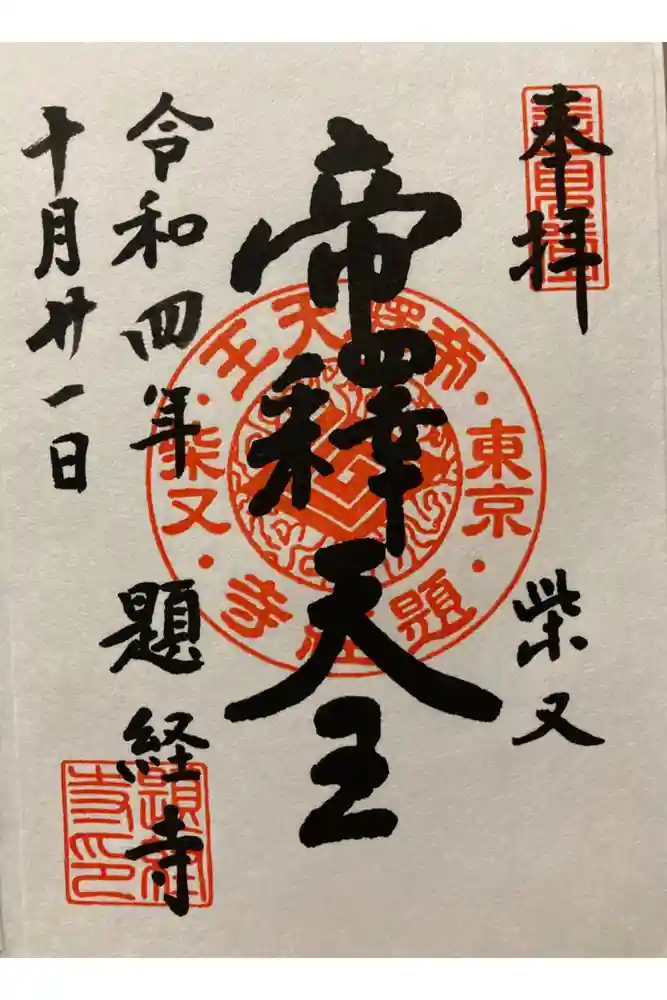 奉拝
柴又
帝釋天王
令和四年
十月廿一日
題経寺
帝釋天王
東京
柴又
題経寺
題経寺印